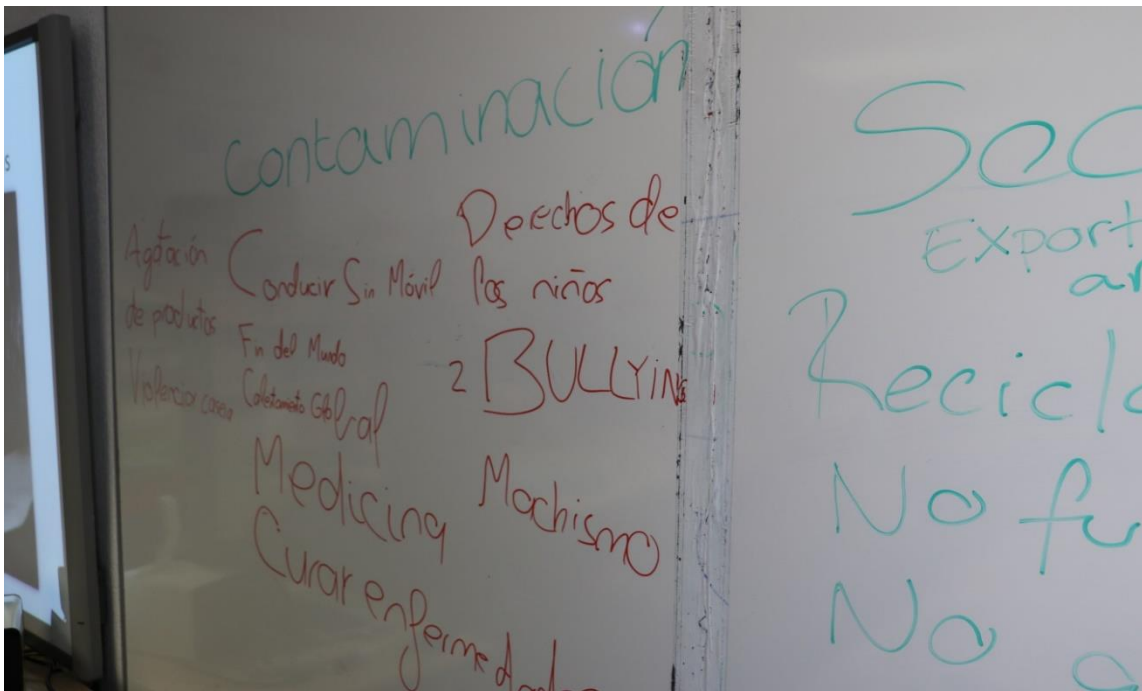 Contaminación
Agotación
de productos
Violencia casera
Conducir Sin Móvil
Fin del Mundo
Calentamento Global
Medicina
Curar enfermedades
Derechos de
los niños
2 BULLYING
Machismo
Export
Recicla
No fu
No